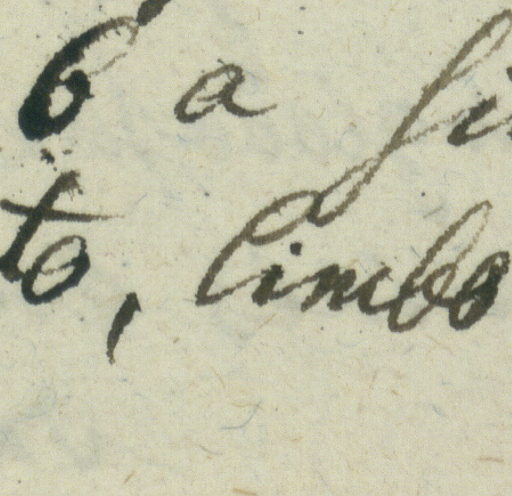 6 a
to, limbo